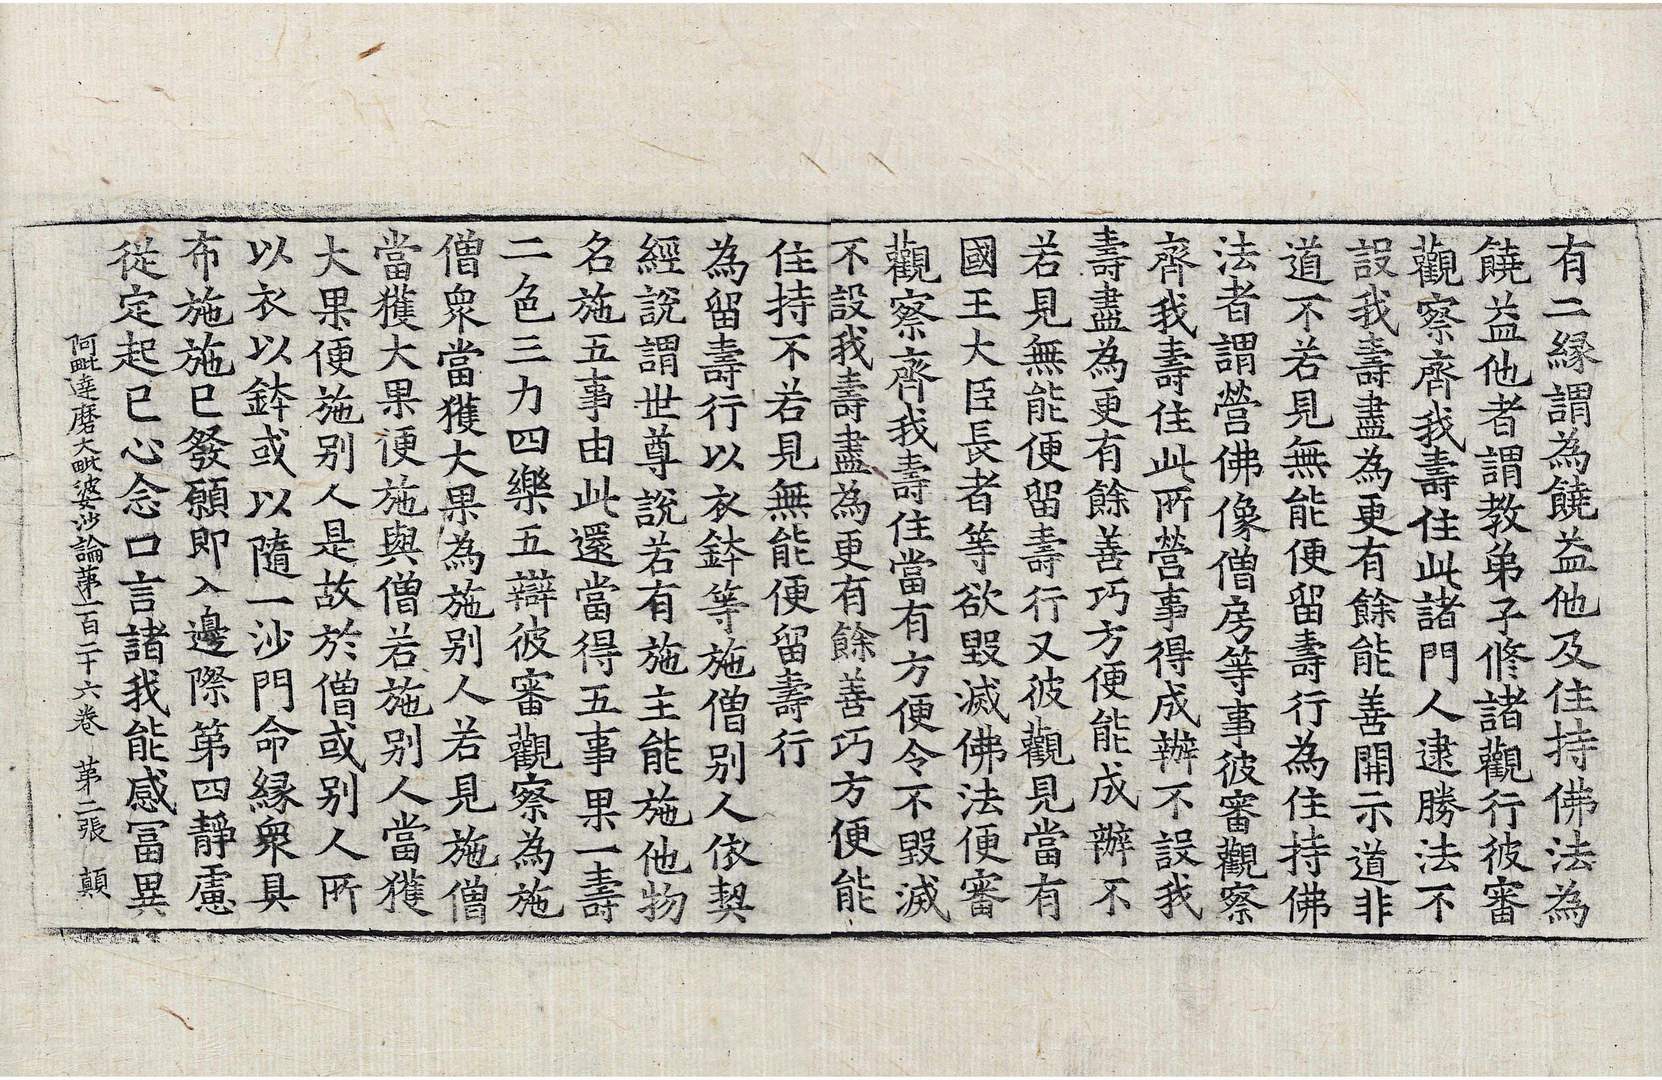 有二縁謂為饒益他及住持佛法為
饒益他者謂教弟子修諸觀行彼審
觀察齊我壽住此諸門人逮勝法不
設我壽盡為更有餘能善開示道非
道不若見無能便留壽行為住持佛
法者謂營佛像僧房等事彼審觀察
齊我壽住此所營事得成辦不設我
壽盡為更有餘善巧方便能成辦不
若見無能便留壽行又彼觀見當有
國王大臣長者等欲毀滅佛法便審
觀察齊我壽住當有方便令不毀滅
不設我壽盡為更有餘善巧方便能
住持不若見無能便留壽行
為留壽行以衣鉢等施僧別人依契
經說謂世尊說若有施主能施他物
名施五事由此還當得五事果一壽
二色三力四樂五辯彼審觀察為施
僧衆當獲大果為施別人若見施僧
當獲大果便施與僧若施別人當獲
大果便施別人是故於僧或別人所
以衣以鉢或以隨一沙門命縁衆具
布施施已發願即入邊際第四靜慮
從定起已心念口言諸我能感冨異
阿毗達磨大毗婆沙論苐一百二十六卷　苐二張　顛